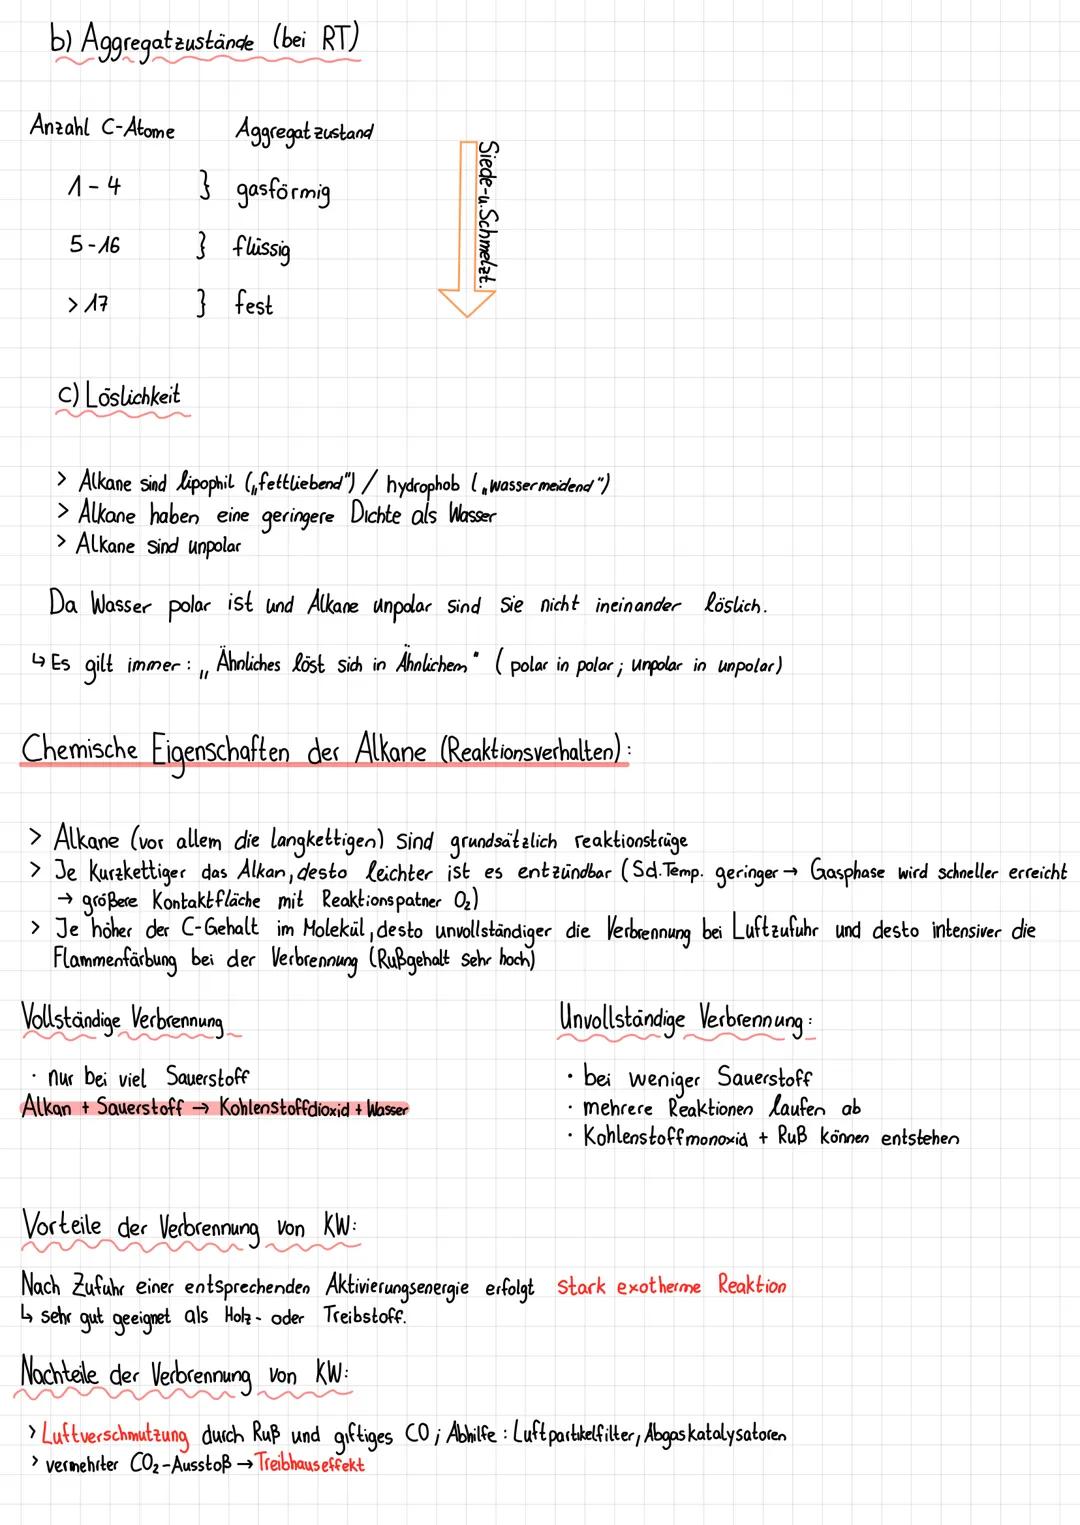 b) Aggregatzustände (bei RT)
Anzahl C-Atome Aggregatzustand
1-4 } gasförmig
5-16 } flüssig
>17 } fest
Siede-u.Schmelzt.
c) Löslichkeit
> Alkane sind lipophil („fettliebend") / hydrophob („wassermeidend")
> Alkane haben eine geringere Dichte als Wasser
> Alkane sind unpolar
Da Wasser polar ist und Alkane unpolar sind sie nicht ineinander löslich.
↳ Es gilt immer: „Ähnliches löst sich in Ähnlichem" (polar in polar; unpolar in unpolar)
Chemische Eigenschaften der Alkane (Reaktionsverhalten):
> Alkane (vor allem die langkettigen) sind grundsätzlich reaktionsträge
> Je kurzkettiger das Alkan, desto leichter ist es entzündbar (Sd.Temp. geringer → Gasphase wird schneller erreicht
→ größere Kontaktfläche mit Reaktionspatner O₂)
> Je höher der C-Gehalt im Molekül, desto unvollständiger die Verbrennung bei Luftzufuhr und desto intensiver die
Flammenfärbung bei der Verbrennung (Rußgehalt sehr hoch)
Vollständige Verbrennung
· nur bei viel Sauerstoff
Alkan + Sauerstoff → Kohlenstoffdioxid + Wasser
Unvollständige Verbrennung:
· bei weniger Sauerstoff
· mehrere Reaktionen laufen ab
· Kohlenstoffmonoxid + Ruß können entstehen
Vorteile der Verbrennung von KW:
Nach Zufuhr einer entsprechenden Aktivierungsenergie erfolgt stark exotherme Reaktion
↳ sehr gut geeignet als Holz- oder Treibstoff.
Nachteile der Verbrennung von KW:
> Luftverschmutzung durch Ruß und giftiges CO; Abhilfe: Luftpartikelfilter, Abgaskatalysatoren
> vermehrter CO₂-Ausstoß → Treibhauseffekt